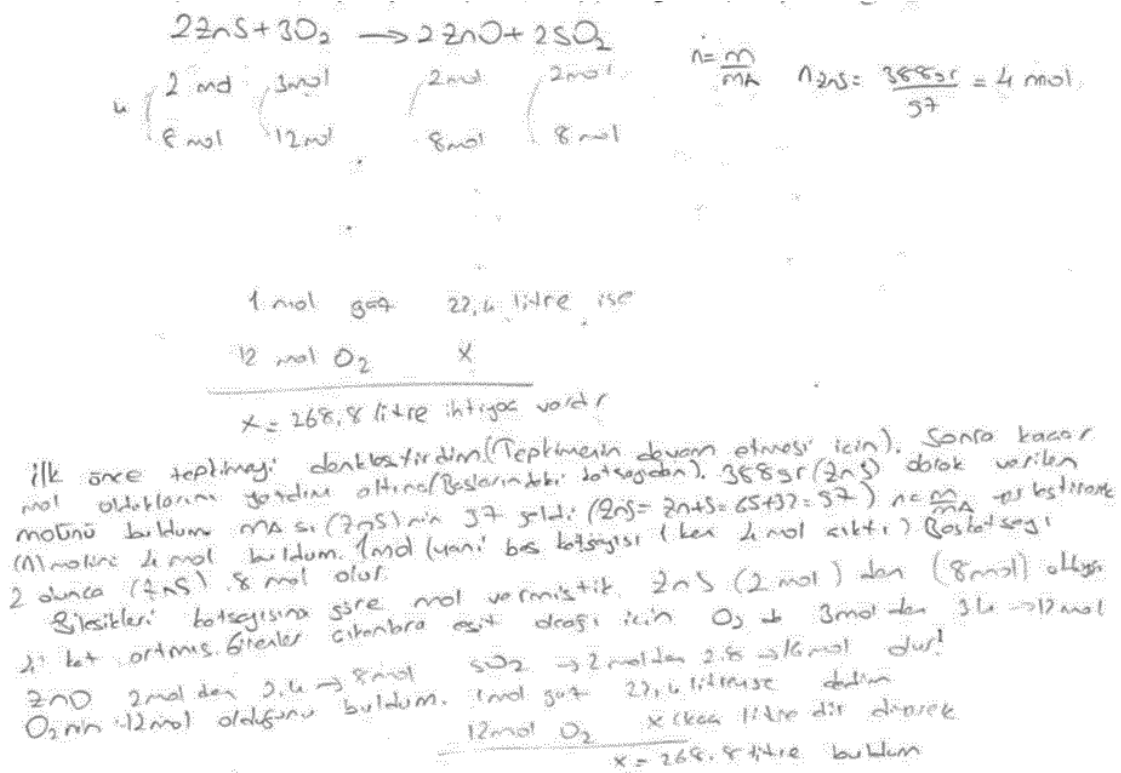 2ZnS + 3O₂ → 2ZnO + 2SO₂
n = m/MA nZnS = 388gr/97 = 4 mol
2 mol 3mol 2mol 2mol
4
8 mol 12mol 8mol 8mol
1 mol gaz 22,4 litre ise
12 mol O₂ X
x = 268,8 litre ihtiyaç vardır
ilk önce tepkimeyi denkleştirdim (Tepkimenin devam etmesi için). Sonra kaçar
mol olduklarını yazdım altına (Başlarındaki katsayıdan). 388gr (ZnS) olarak verilen
molünü buldum MA sı (ZnS) nin 97 geldi (ZnS = Zn+S = 65+32 = 97) n = m/MA
(n) molünü 4 mol buldum. 1mol (yani baş katsayısı 1 ken 4 mol çıktı) Baş katsayı
2 olunca (ZnS) 8 mol olur.
Bileşikleri katsayısına göre mol vermiştik. ZnS (2 mol) den (8mol)
4 kat artmış. Girenler çıkanlara eşit olacağı için O₂ de 3mol den 3.4 → 12 mol
ZnO 2mol den 2.4 → 8mol SO₂ → 2 molden 2.8 → 16 mol dur!
O₂ nin 12mol olduğunu buldum. 1mol gaz 22,4 litreyse dedim
12mol O₂ x kaç litre dir diyerek
x = 268.8 litre buldum